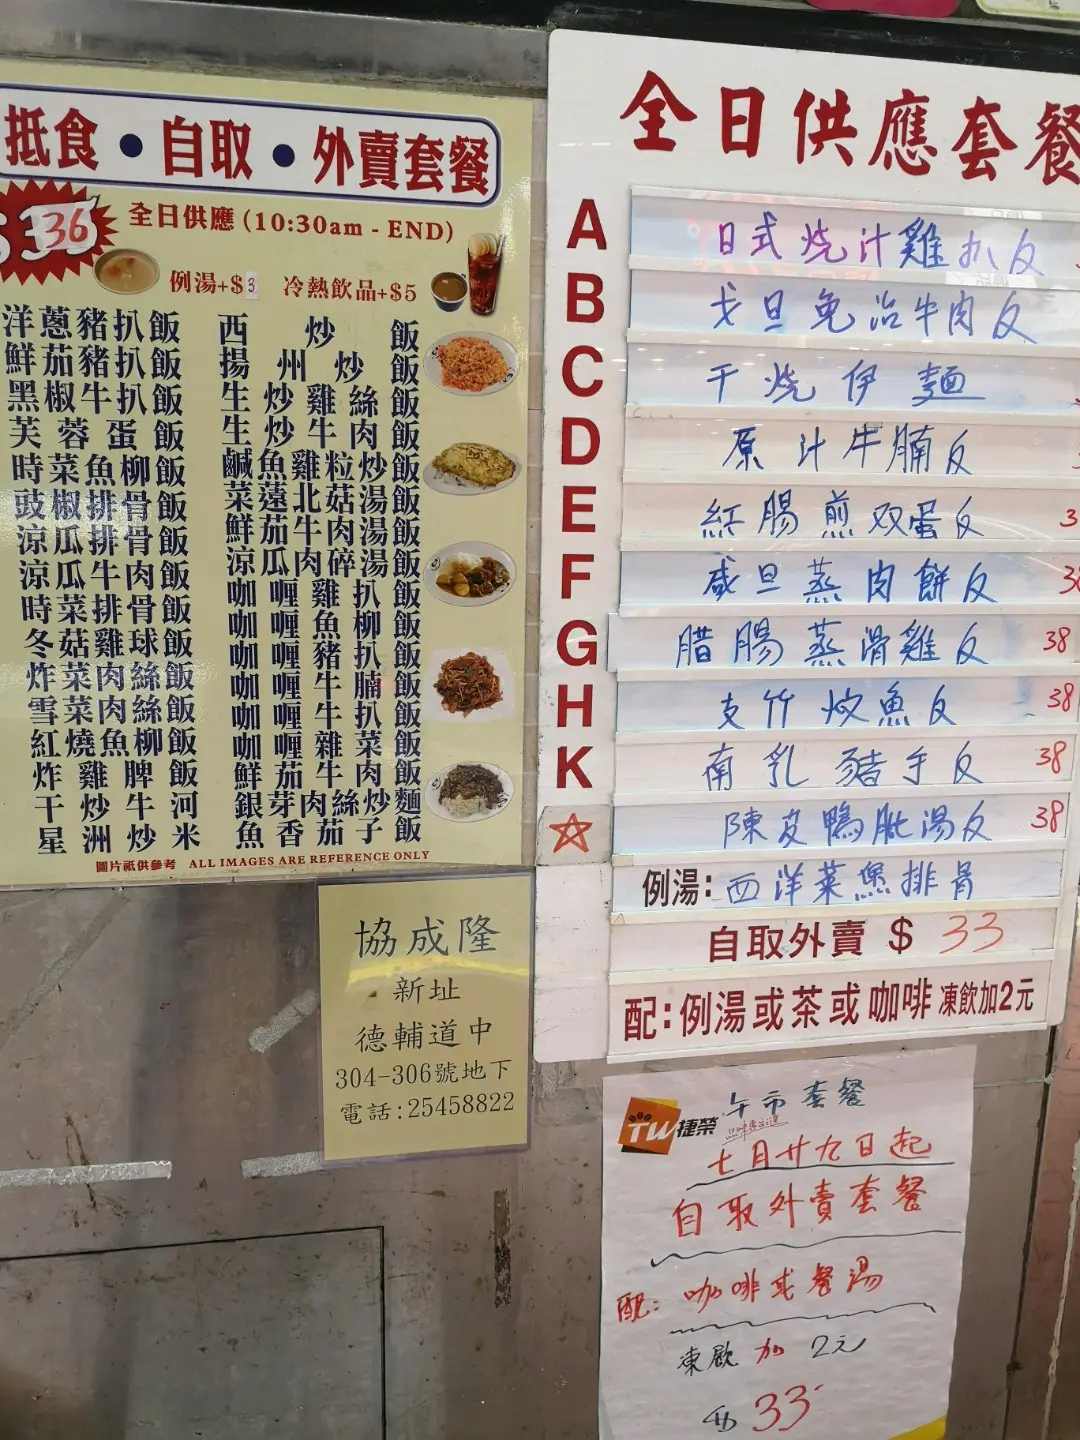 抵食 • 自取 • 外賣套餐
$36
全日供應 (10:30am - END)
例湯+$3 冷熱飲品+$5
洋蔥豬扒飯
鮮茄豬扒飯
黑椒牛扒飯
芙蓉蛋飯
時菜魚柳飯
豉椒排骨飯
涼瓜排骨飯
涼瓜牛肉飯
時菜排骨飯
冬菇雞球飯
炸菜肉絲飯
雪菜肉絲飯
紅燒魚柳飯
炸雞脾飯
干炒牛河
星洲炒米
西炒飯
揚州炒飯
生炒雞絲飯
生炒牛肉飯
鹹魚雞粒炒飯
菜薳北菇湯飯
鮮茄牛肉湯飯
涼瓜肉碎湯飯
咖喱雞扒飯
咖喱魚柳飯
咖喱豬扒飯
咖喱牛腩飯
咖喱牛扒飯
咖喱雜菜飯
鮮茄牛肉飯
銀芽肉絲炒麵
魚香茄子飯
圖片祇供參考 ALL IMAGES ARE REFERENCE ONLY
協成隆
新址
德輔道中
304-306號地下
電話:25458822
全日供應套餐
A 日式烧汁雞扒反
B 戈旦免治牛肉反
C 干烧伊麵
D 原汁牛腩反
E 紅腸煎双蛋反
F 咸旦蒸肉餅反
G 腊腸蒸滑雞反 38
H 支竹炆魚反 38
K 南乳豬手反 38
☆ 陳皮鴨肶湯反 38
例湯: 西洋菜煲排骨
自取外賣 $ 33
配:例湯或茶或咖啡 凍飲加2元
TW捷榮
午市套餐
七月廿九日起
自取外賣套餐
配: 咖啡或餐湯
凍飲加2元
$33